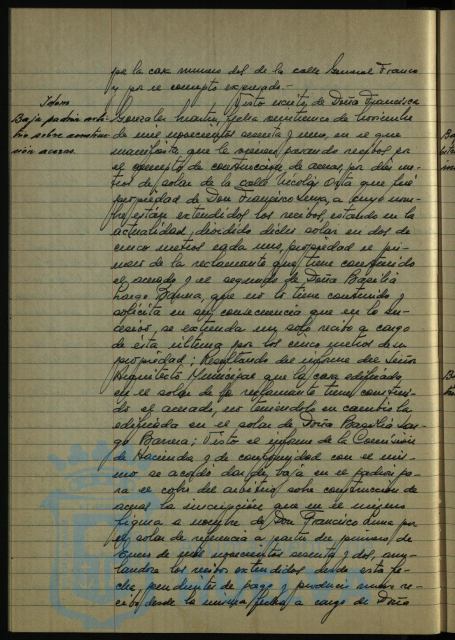 por la casa numero dos de la calle General Franco
y por el concepto expresado.-
Idem
Baja padrón arbi-
trio sobre construc-
ción aceras.
Visto escrito de Doña Francisca
Gonzalez, fecha veintinueve de Noviembre
de mil novecientos sesenta y uno, en el que
manifiesta que le vienen pasando recibos por
el concepto de construcción de aceras, por diez me-
tros de solar de la calle Nicolás que fué
propiedad de Don Francisco Luna, a cuyo nom-
bre están extendidos los recibos estando en la
actualidad, dividido dicho solar en dos de
cinco metros cada uno, propiedad el pri-
mero de la reclamante que tiene construido
el acerado y el segundo de Doña Basilia
Largo Barrera, que no lo tiene construido y
solicita en su consecuencia que en lo su-
cesivo, se extienda un solo recibo a cargo
de ésta última por los cinco metros de su
propiedad; Resultando del informe del Señor
Arquitecto Municipal que la casa edificada
en el solar de la reclamante tiene construi-
do el acerado, no teniendolo en cambio la
edificada en el solar de Doña Basilia Lar-
go Barrera; Visto el informe de la Comisión
de Hacienda y de conformidad con el mis-
mo se acordó dar de baja en el padrón pa-
ra el cobro del arbitrio sobre construcción de
aceras la inscripción que en el mismo
figura a nombre de Don Francisco Luna por
el solar de referencia a partir de primero de
Enero de mil novecientos sesenta y dos, anu-
landose los recibos extendidos desde esta fe-
cha, pendientes de pago y producir nuevo re-
cibo desde la misma fecha a cargo de Doña